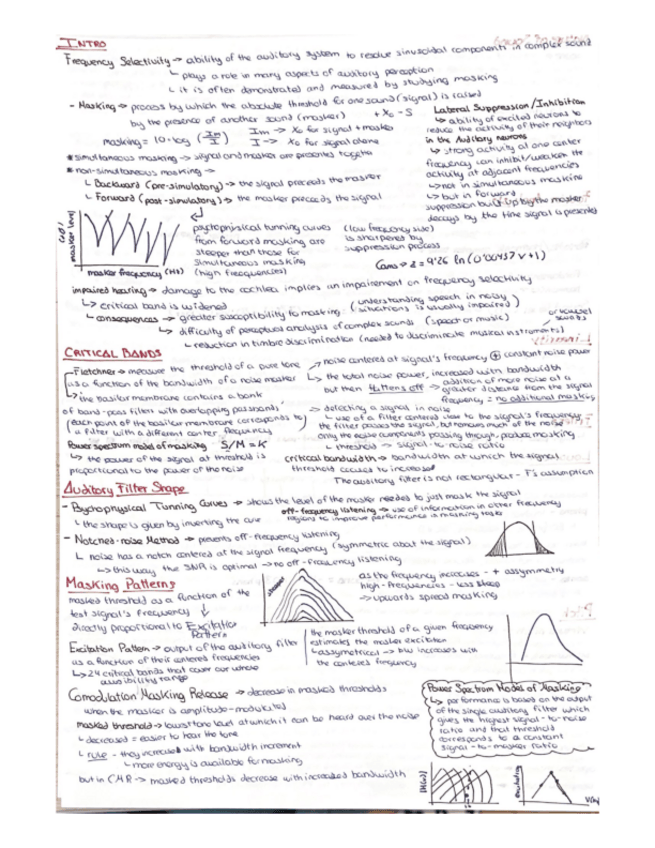 INTRO
Frequency Selectivity → ability of the auditory system to resolve sinusoidal components in complex sound
↳ plays a role in many aspects of auditory perception
↳ it is often demonstrated and measured by studying masking
- Masking → process by which the absolute threshold for one sound (signal) is raised
by the presence of another sound (masker)
masking = 10·log (Im/I) Im → X₀ for signal + masker
I → X₀ for signal alone
* simultaneous masking → signal and masker are presented together
* non-simultaneous masking →
↳ Backward (pre-simulatory) → the signal preceeds the masker
↳ Forward (post-simulatory) → the masker preceeds the signal
Lateral Suppression/Inhibition
↳ ability of excited neurons to
reduce the activity of their neighbors
in the Auditory neurons
↳ strong activity at one center
frequency can inhibit/weaken the
activity at adjacent frequencies
↳ not in simultaneous masking
↳ but in forward
suppression built-up by the masker
decays by the time signal is presented
masker level
masker frequency (Hz)
psychophysical tunning curves
from forward masking are
steeper than those for
simultaneous masking
(high frequencies)
(low frequency side)
is sharpened by
suppression process
Cams → = 9'26 ln(0'00437 + 1)
impaired hearing → damage to the cochlea implies an impairment on frequency selectivity
↳ critical band is widened
(understanding speech in noisy
situations is usually impaired)
↳ consequences → greater susceptibility to masking
↳ difficulty of perceptual analysis of complex sounds (speech or music)
↳ reduction in timbre discrimination (needed to discriminate musical instruments)
CRITICAL BANDS
Fletchner → measure the threshold of a pure tone
as a function of the bandwidth of a noise masker
↳ the basilar membrane contains a bank
of band-pass filters with overlapping passbands
(each point of the basilar membrane corresponds to
a filter with a different center frequency)
Power spectrum model of masking S/M = K
↳ the power of the signal at threshold is
proportional to the power of the noise
noise centered at signal's frequency ⊕ constant noise power
↳ the total noise power, increased with bandwidth
but then flattens off → addition of more noise at a
greater distance from the signal
frequency = no additional masking
→ detecting a signal in noise
↳ use of a filter centered close to the signal's frequency
the filter passes the signal, but removes much of the noise
only the noise components passing through, produce masking
↳ threshold → signal-to-noise ratio
critical bandwidth → bandwidth at which the signal
threshold ceases to increased
The auditory filter is not rectangular - F's assumption
Auditory Filter Shape
- Psychophysical Tunning Curves → shows the level of the masker needed to just mask the signal
↳ the shape is given by inverting the curve
off-frequency listening → use of information in other frequency
regions to improve performance in masking tasks
- Notched-noise Method → prevents off-frequency listening
↳ noise has a notch centered at the signal frequency (symmetric about the signal)
↳ this way the SNR is optimal → no off-frequency listening
Masking Patterns
masked threshold as a function of the
test signal's frequency
directly proportional to Excitation
Pattern
as the frequency increases - + assymmetry
high-frequencies - less steep
→ upwards spread masking
Excitation Pattern → output of the auditory filter
as a function of their centered frequencies
↳ 24 critical bands that cover our whole
audibility range
the masker threshold of a given frequency
estimates the masker excitation
↳ assymetrical → bw increases with
the centered frequency
Comodulation Masking Release → decrease in masked thresholds
when the masker is amplitude-modulated
masked threshold → lowest tone level at which it can be heard over the noise
↳ decreased = easier to hear the tone
↳ rule - they increased with bandwidth increment
↳ more energy is available for masking
but in CMR → masked thresholds decrease with increased bandwidth
Power Spectrum Model of Masking
↳ performance is based on the output
of the single auditory filter which
gives the highest signal-to-noise
ratio and that threshold
corresponds to a constant
signal-to-masker ratio